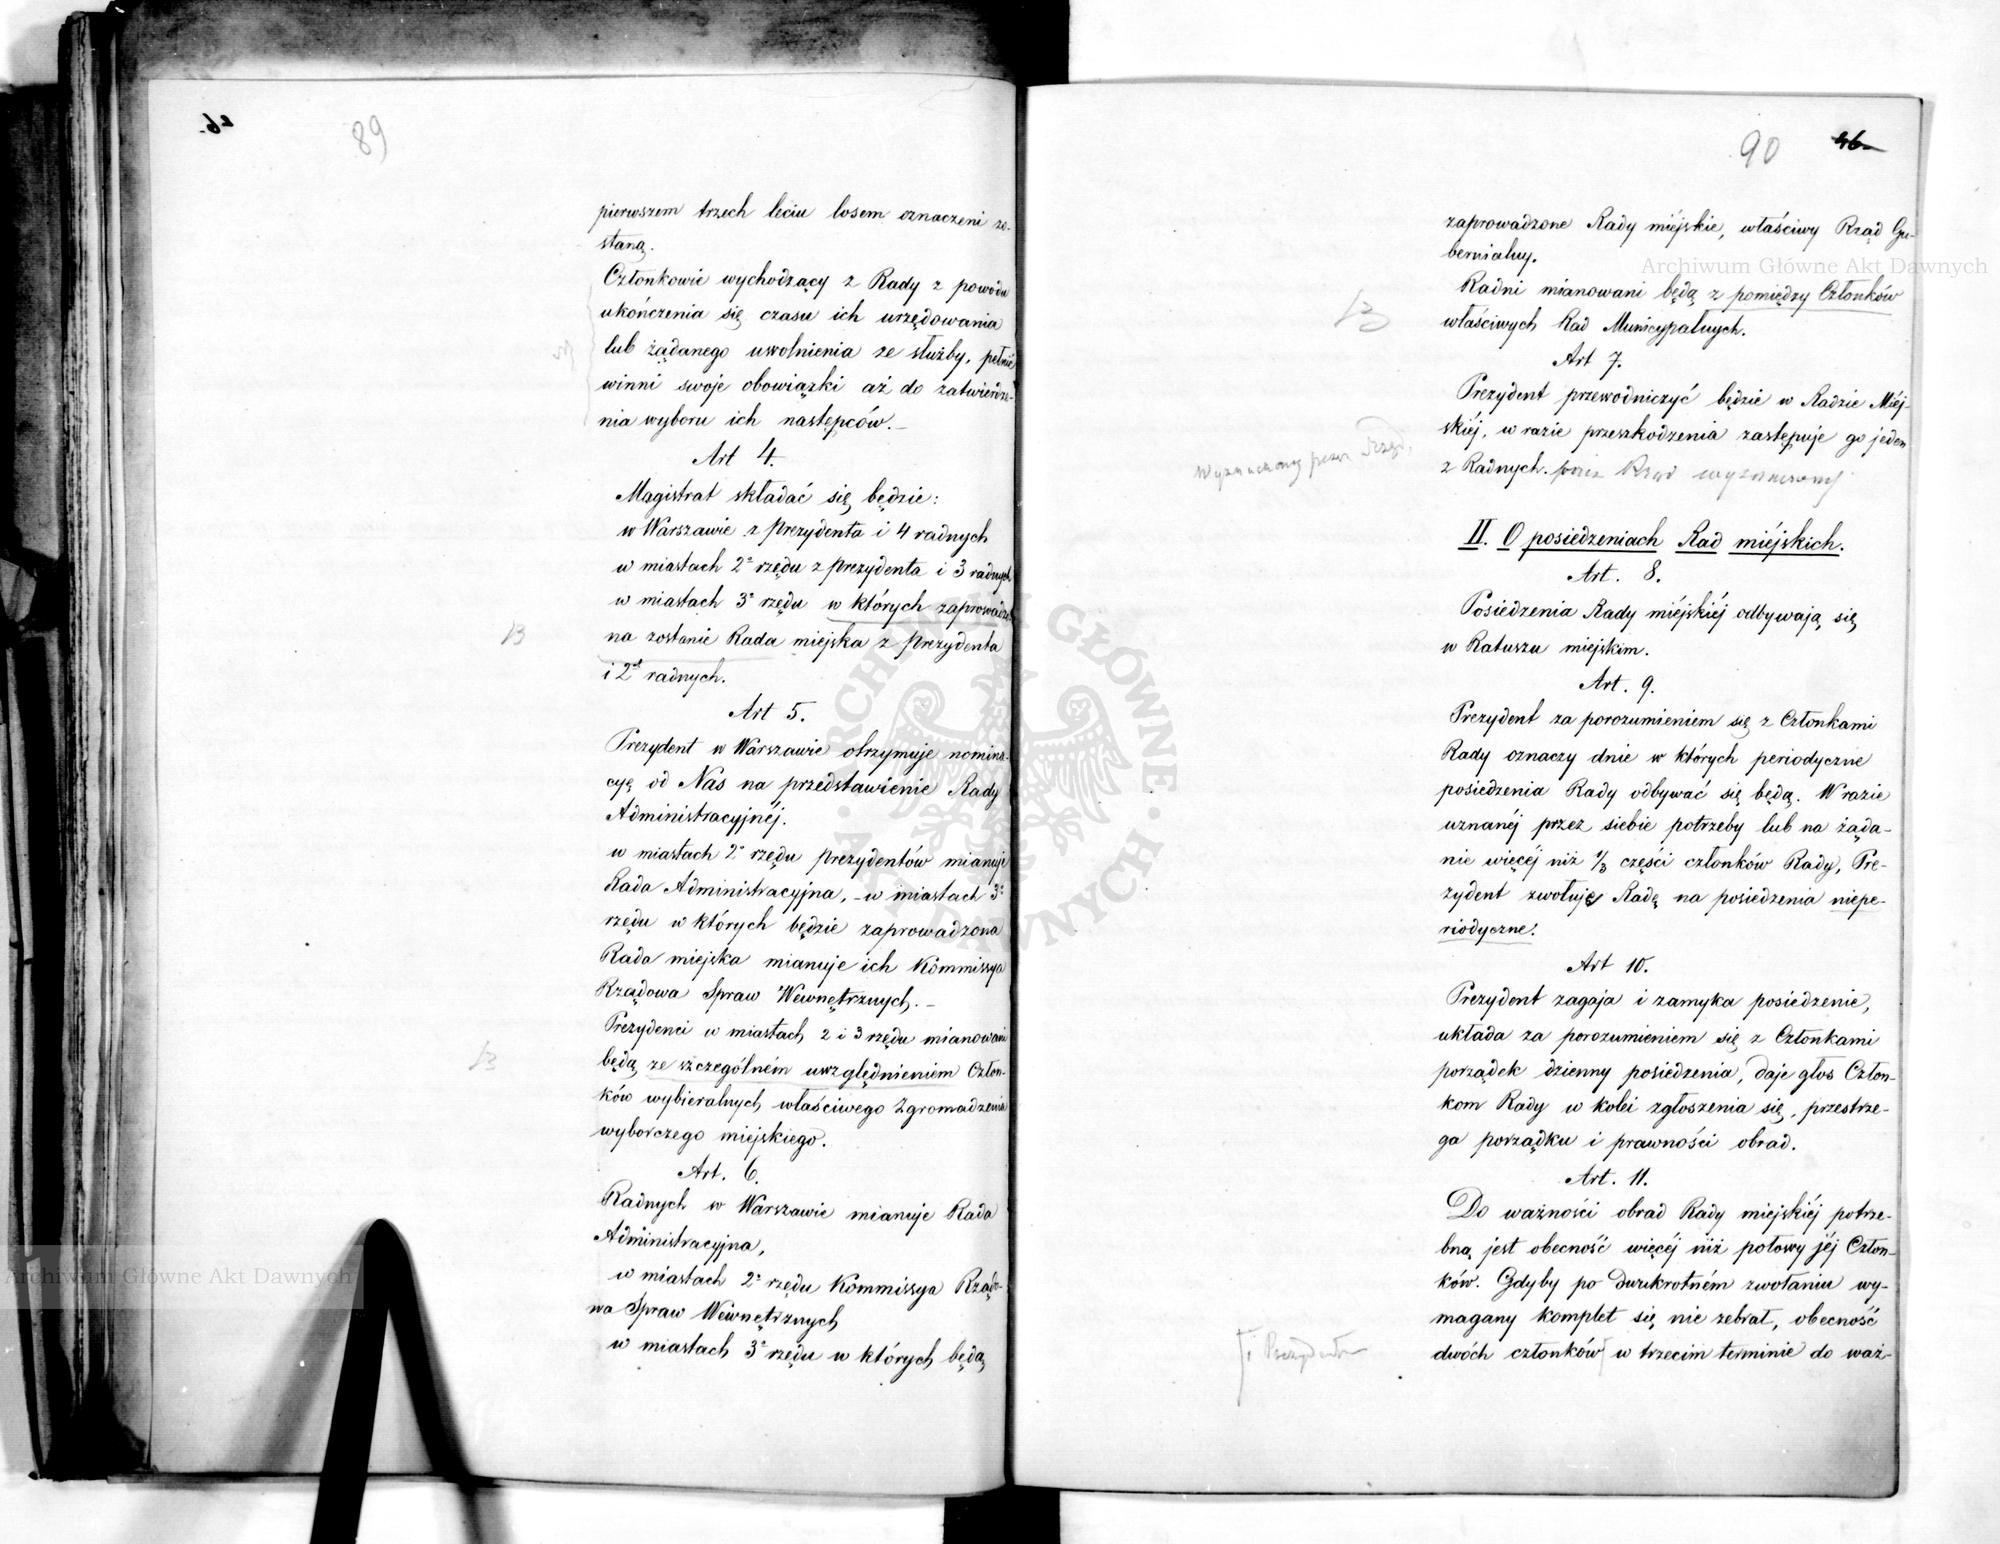 89
pierwszem trzech leciu losem oznaczeni zo-
staną.
Członkowie wychodzący z Rady z powodu
ukończenia się czasu ich urzędowania
lub żądanego uwolnienia ze służby, pełnić
winni swoje obowiązki aż do zatwierdze-
nia wyboru ich następców.
Art 4.
Magistrat składać się będzie:
w Warszawie z Prezydenta i 4 radnych
w miastach 2º rzędu z prezydenta i 3 radnych
w miastach 3º rzędu w których zaprowadzo-
na zostanie Rada miejska z Prezydenta
i 2ch radnych.
Art 5.
Prezydent w Warszawie otrzymuje nomina-
cyę od Nas na przedstawienie Rady
Administracyjnéj.
w miastach 2º rzędu prezydentów mianuje
Rada Administracyjna, - w miastach 3º
rzędu w których będzie zaprowadzona
Rada miejska mianuje ich Kommissya
Rządowa Spraw Wewnętrznych. -
Prezydenci w miastach 2 i 3 rzędu mianowani
będą ze szczególném uwzględnieniem Człon-
ków wybieralnych właściwego Zgromadzenia
wyborczego miejskiego.
Art. 6.
Radnych w Warszawie mianuje Rada
Administracyjna,
w miastach 2º rzędu Kommissya Rządo-
wa Spraw Wewnętrznych
w miastach 3º rzędu w których będą
90 46
zaprowadzone Rady miéjskie, właściwy Rząd Gu-
bernialny.
Radni mianowani będą z pomiędzy Członków
właściwych Rad Municypalnych.
Art 7.
Prezydent przewodniczyć będzie w Radzie Miéj-
skiéj, w razie przeszkodzenia zastępuje go jeden
z Radnych. przez Rząd wyznaczony
Wyznaczony przez Rząd.
II. O posiedzeniach Rad miéjskich.
Art. 8.
Posiedzenia Rady miéjskiéj odbywają się
w Ratuszu miejskim.
Art. 9.
Prezydent za porozumieniem się z Członkami
Rady oznaczy dnie w których periodyczne
posiedzenia Rady odbywać się będą. W razie
uznanéj przez siebie potrzeby lub na żąda-
nie więcéj niż 1/3 części członków Rady, Pre-
zydent zwołuje Radę na posiedzenia niepe-
riodyczne.
Art 10.
Prezydent zagaja i zamyka posiedzenie,
układa za porozumieniem się z Członkami
porządek dzienny posiedzenia, daje głos Człon-
kom Rady w kolei zgłoszenia się, przestrze-
ga porządku i prawności obrad.
Art. 11.
Do ważności obrad Rady miejskiéj potrze-
bną jest obecność więcéj niż połowy jéj Człon-
ków. Gdyby po dwukrotném zwołaniu wy-
magany komplet się nie zebrał, obecność
dwóch członków w trzecim terminie do waż-
i Prezydenta
Archiwum Główne Akt Dawnych
Archiwum Główne Akt Dawnych
ARCHIWUM GŁÓWNE AKT DAWNYCH